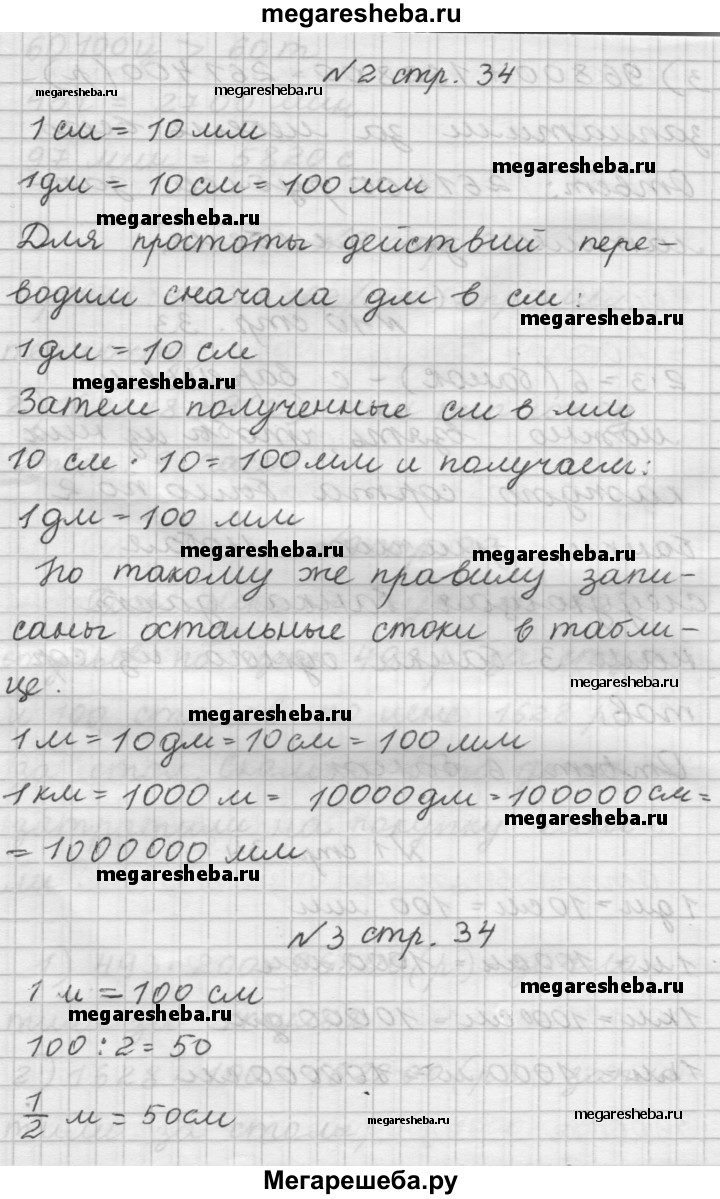 megaresheba.ru
N2 стр. 34
megaresheba.ru megaresheba.ru
1 см = 10 мм
megaresheba.ru
1 дм = 10 см = 100 мм
megaresheba.ru
Для простоты действий пере-
водим сначала дм в см:
megaresheba.ru
1 дм = 10 см
megaresheba.ru
Затем полученные см в мм
10 см · 10 = 100 мм и получаем:
1 дм = 100 мм
megaresheba.ru megaresheba.ru
По такому же правилу запи-
саны остальные стоки в табли-
це.
megaresheba.ru
megaresheba.ru
1 м = 10 дм = 10 см = 100 мм
1 км = 1000 м = 10000 дм = 100000 см =
megaresheba.ru
= 1000000 мм
megaresheba.ru
N3 стр. 34
1 м = 100 см
megaresheba.ru
megaresheba.ru
100 : 2 = 50
1/2 м = 50 см
megaresheba.ru megaresheba.ru
Мегарешеба.ру